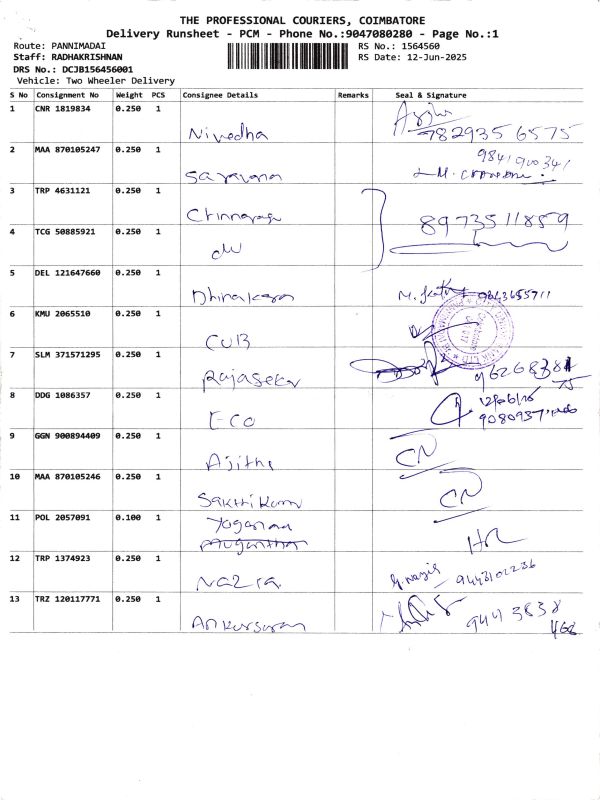 THE PROFESSIONAL COURIERS, COIMBATORE
Delivery Runsheet - PCM - Phone No.:9047080280 - Page No.:1
Route: PANNIMADAI
RS No.: 1564560
Staff: RADHAKRISHNAN
RS Date: 12-Jun-2025
DRS No.: DCJB156456001
Vehicle: Two Wheeler Delivery
S No Consignment No Weight PCS Consignee Details Remarks Seal & Signature
1 CNR 1819834 0.250 1 Nivedha 7829356575
2 MAA 870105247 0.250 1 Saravana
3 TRP 4631121 0.250 1
4 TCG 50885921 0.250 1 8973511859
5 DEL 121647660 0.250 1 Dhinakaran
6 KMU 2065510 0.250 1 CUB
7 SLM 371571295 0.250 1 Rajasekar
8 DDG 1086357 0.250 1 ECO
9 GGN 900894409 0.250 1 Ajitha CN
10 MAA 870105246 0.250 1 CN
11 POL 2057091 0.100 1
12 TRP 1374923 0.250 1 Nazira 9443102236
13 TRZ 120117771 0.250 1 9443838